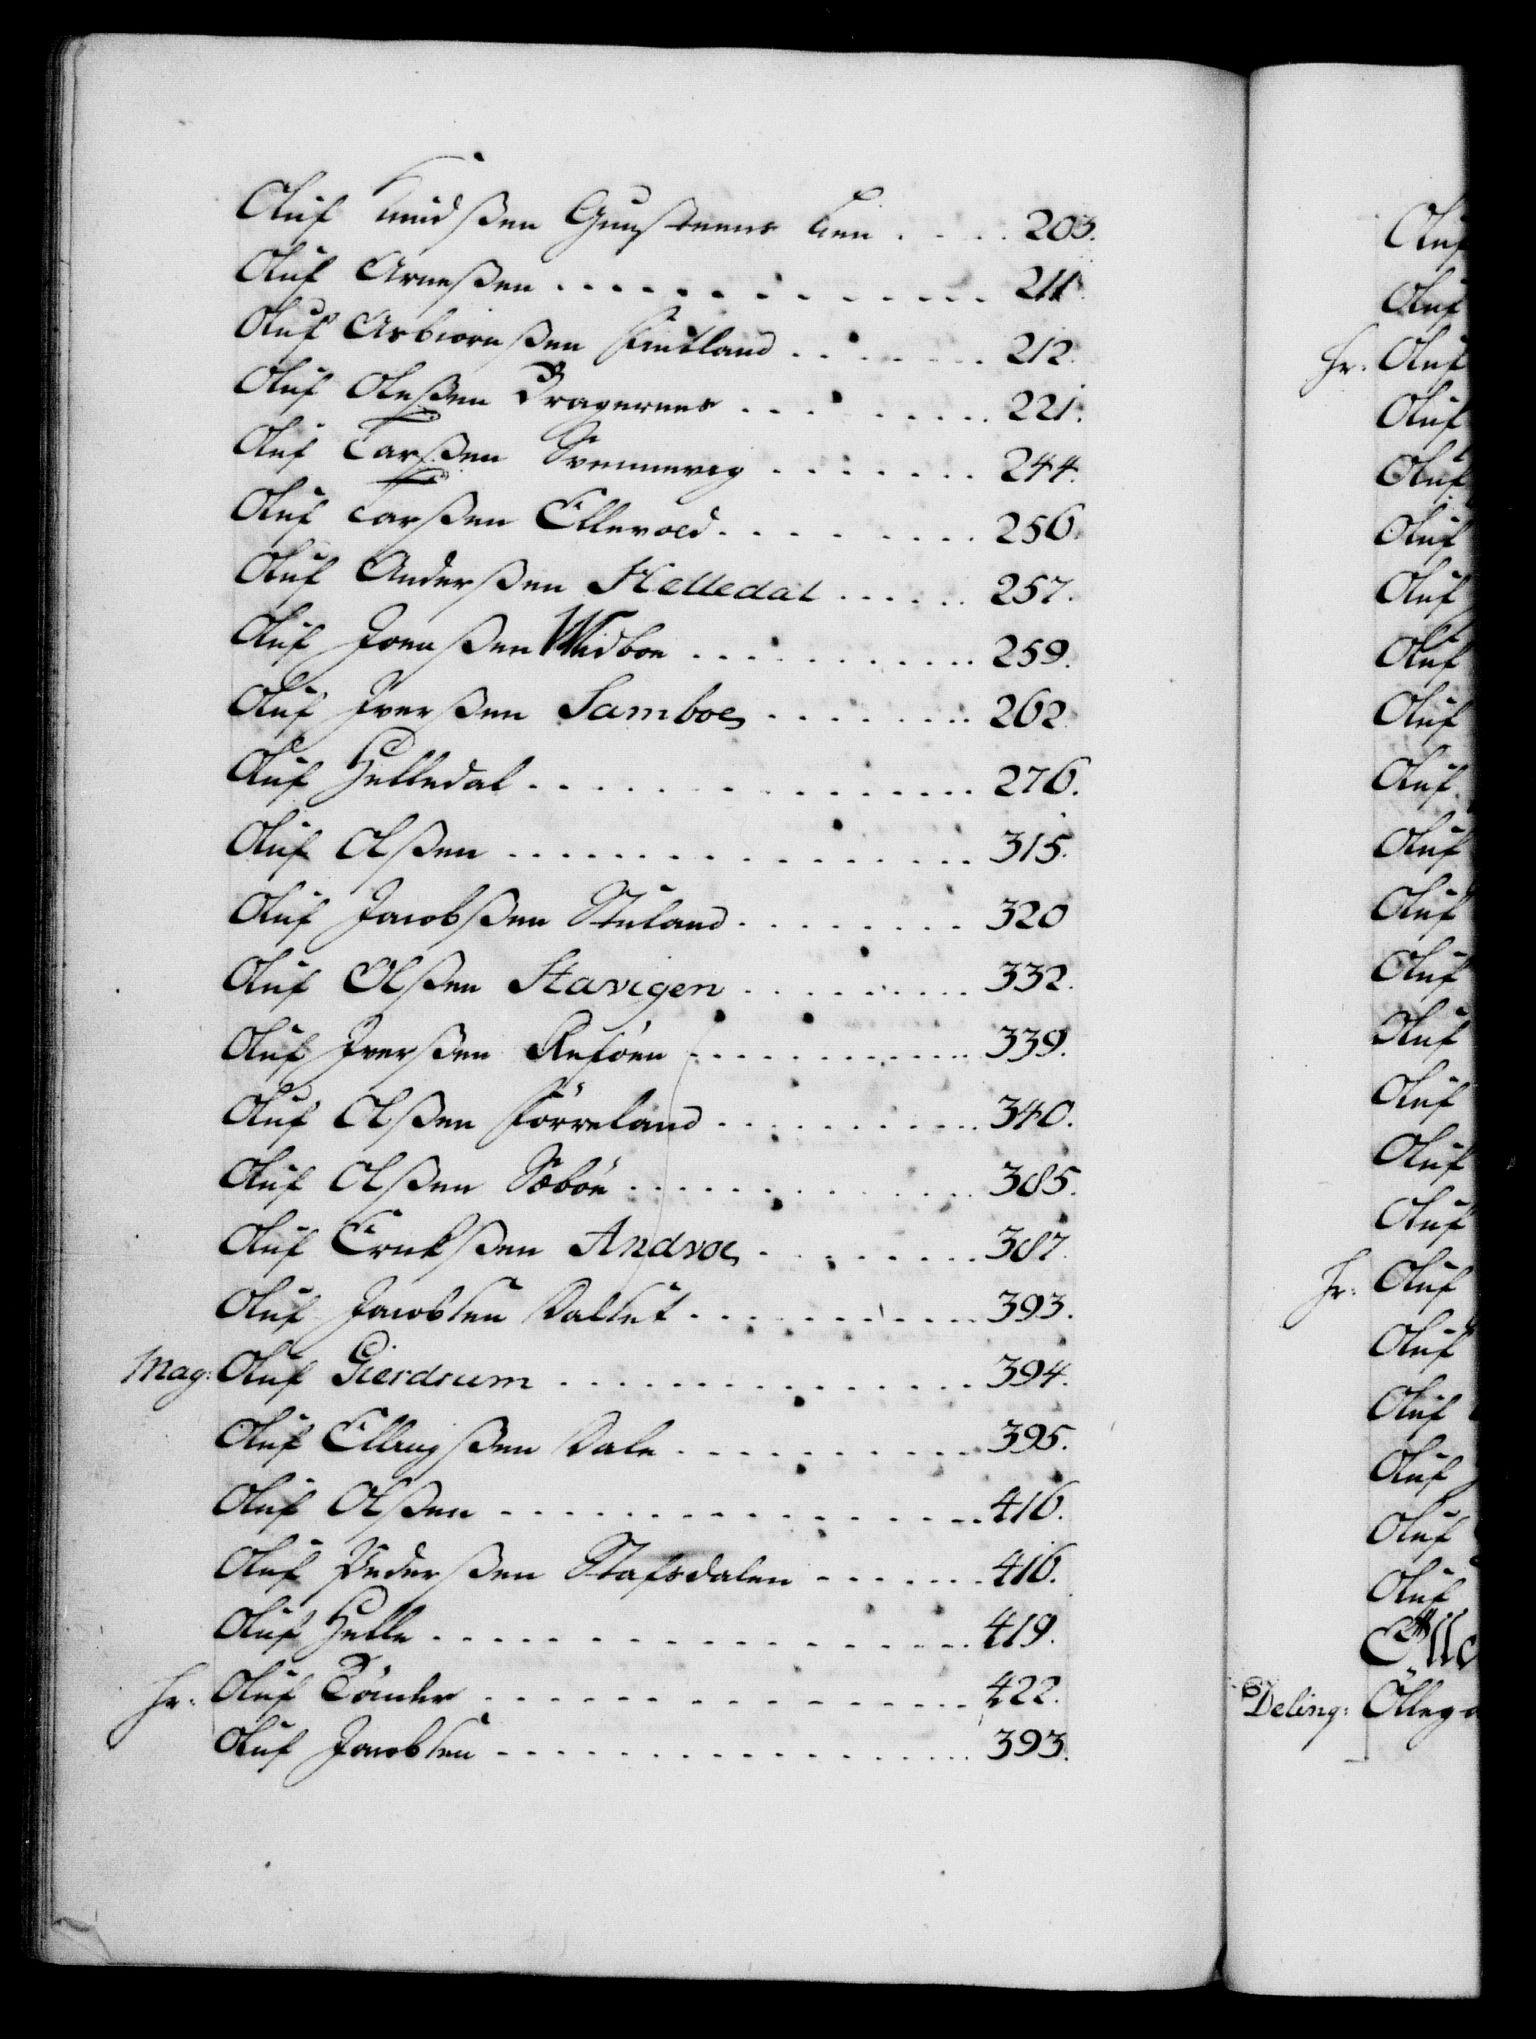 Oluf Knudßen Gunsteens Lien . . . . 203.
Oluf Arneßen . . . . . . . . . . . . . 211.
Oluf Asbiørnßen Fintland . . . . . . . 212.
Oluf Oleßen Dragernes . . . . . . . . 221.
Oluf Larßen Svennevig . . . . . . . 244.
Oluf Larßen Ellevold . . . . . . . . . 256.
Oluf Anderßen Helledal . . . . . . 257.
Oluf Joenßen Widboe . . . . . . . . . . 259.
Oluf Iverßen Samboe . . . . . . . . 262.
Oluf Helledal . . . . . . . . . . . . . . . 276.
Oluf Olßen . . . . . . . . . . . . . . . . 315.
Oluf Jacobßen Stuland . . . . . . . . 320
Oluf Olßen Stavigen . . . . . . . . . 332.
Oluf Iverßen Reføen . . . . . . . . . . . 339.
Oluf Olßen Førreland . . . . . . . . . . 340.
Oluf Olßen Sæbøe . . . . . . . . . . . . 385.
Oluf Erichßen Andvoe . . . . . . . . 387.
Oluf Jacobsen Valset . . . . . . . . . . 393.
Mag: Oluf Gierdrum . . . . . . . . . . . . . . 394.
Oluf Ellingßen Dale . . . . . . . . . . 395.
Oluf Olßen . . . . . . . . . . . . . . . . 416.
Oluf Pederßen Stafsdalen . . . . . . . 416.
Oluf Helle . . . . . . . . . . . . . . . . . 419.
Hr: Oluf Tønder . . . . . . . . . . . . . . . . 422.
Oluf Jacobsen . . . . . . . . . . . . . . . . 393.
Oluf
Oluf
Hr: Oluf
Oluf
Oluf
Oluf
Oluf
Oluf
Oluf
Oluf
Oluf
Oluf
Oluf
Oluf
Oluf
Oluf
Oluf
Hr: Oluf
Oluf
Oluf
Oluf
Oluf
Oluf
Deling: